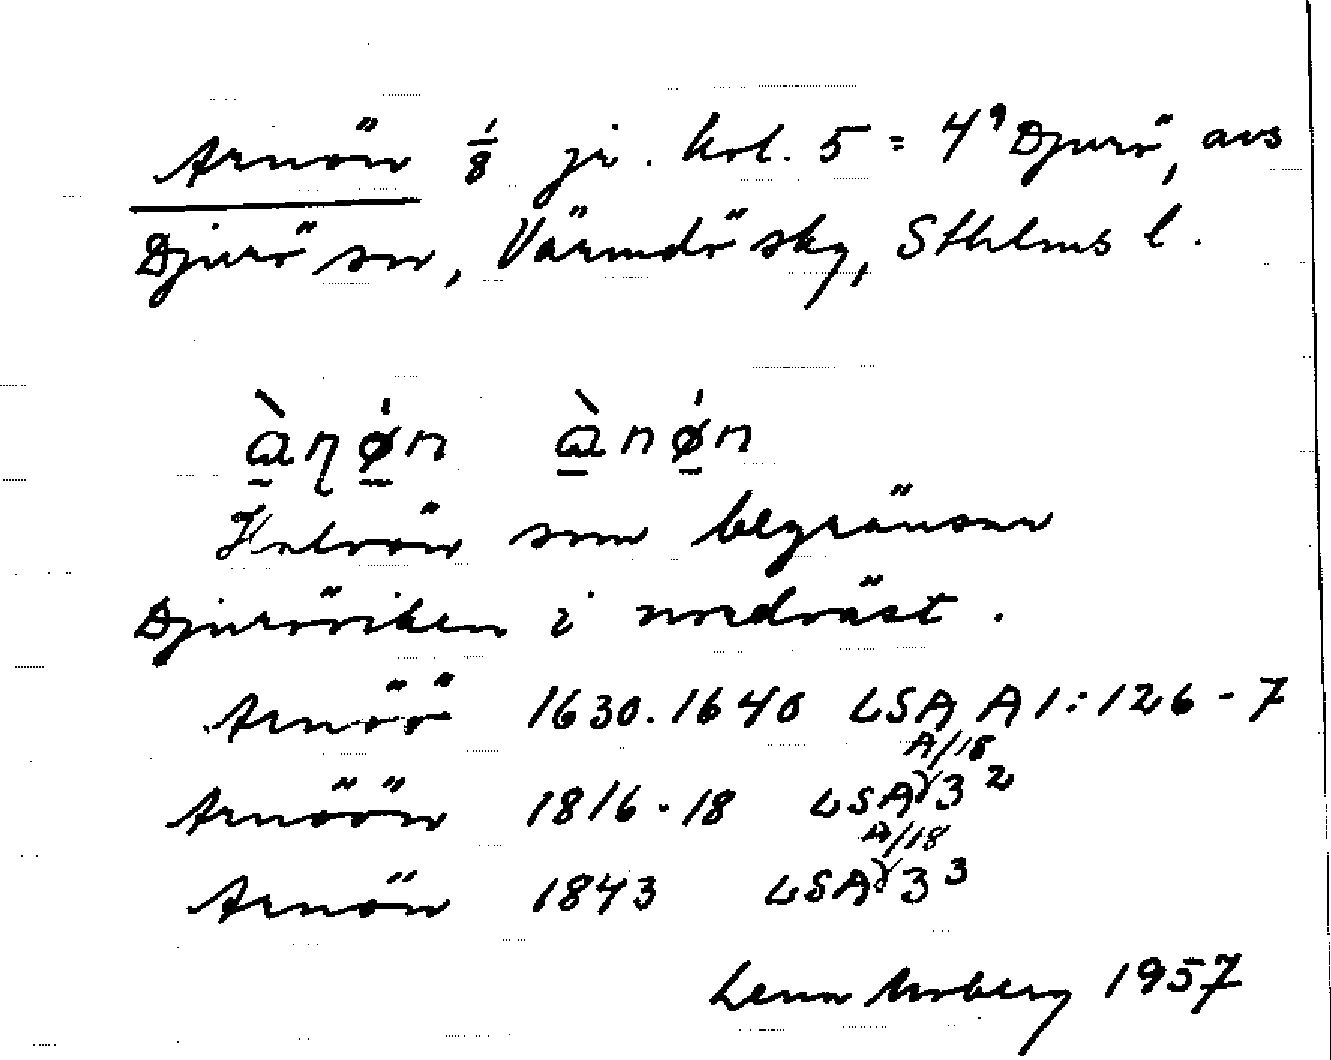 Arnön 1/8 jr. kbl. 5 = 4⁹ Djurö, avs
Djurö sn, Värmdö sky, Sthlms l.
àṇǿ̣n ànǿ̣n
Halvön som begränsar
Djuröviken i nordväst.
Arnöö 1630.1640 LSA A1:126-7
Arnöön 1816-18 LSA A/18 3²
Arnön 1843 LSA A/18 3³
Lena Moberg 1957